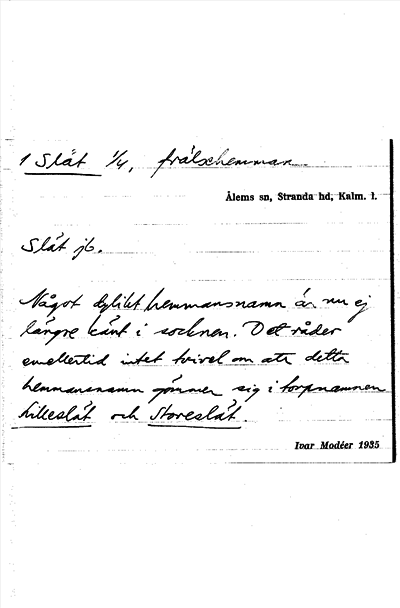 1 Slät 1/4, frälsehemman.
Ålems sn, Stranda hd, Kalm. l.
Slät jb.
Något dylikt hemmansnamn är nu ej
längre känt i socknen. Det råder
emellertid intet tvivel om att detta
hemmansnamn gömmer sig i torpnamnen
Lilleslät och Storeslät.
Ivar Modéer 1935